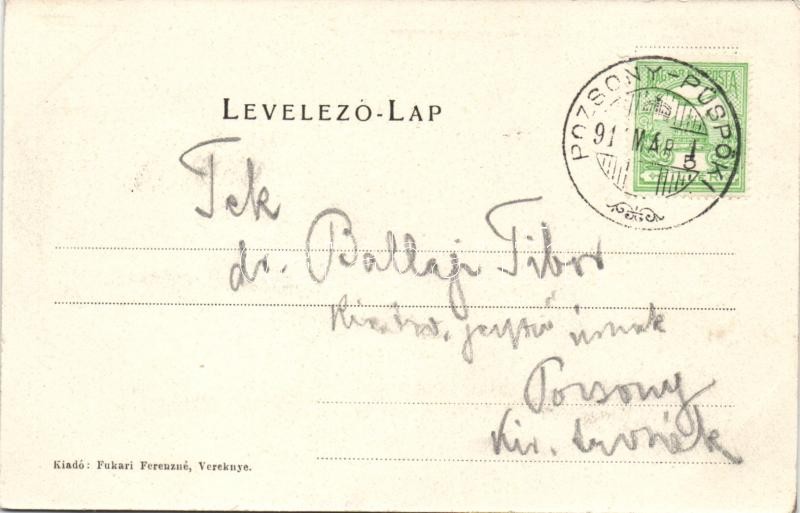 LEVELEZŐ-LAP
POZSONY-PÜSPÖKI
911 MÁR 1
5
Tek
dr. Ballagi Tibor
úrnak
Pozsony
Kir.
Kiadó: Fukari Ferenzné, Vereknye.